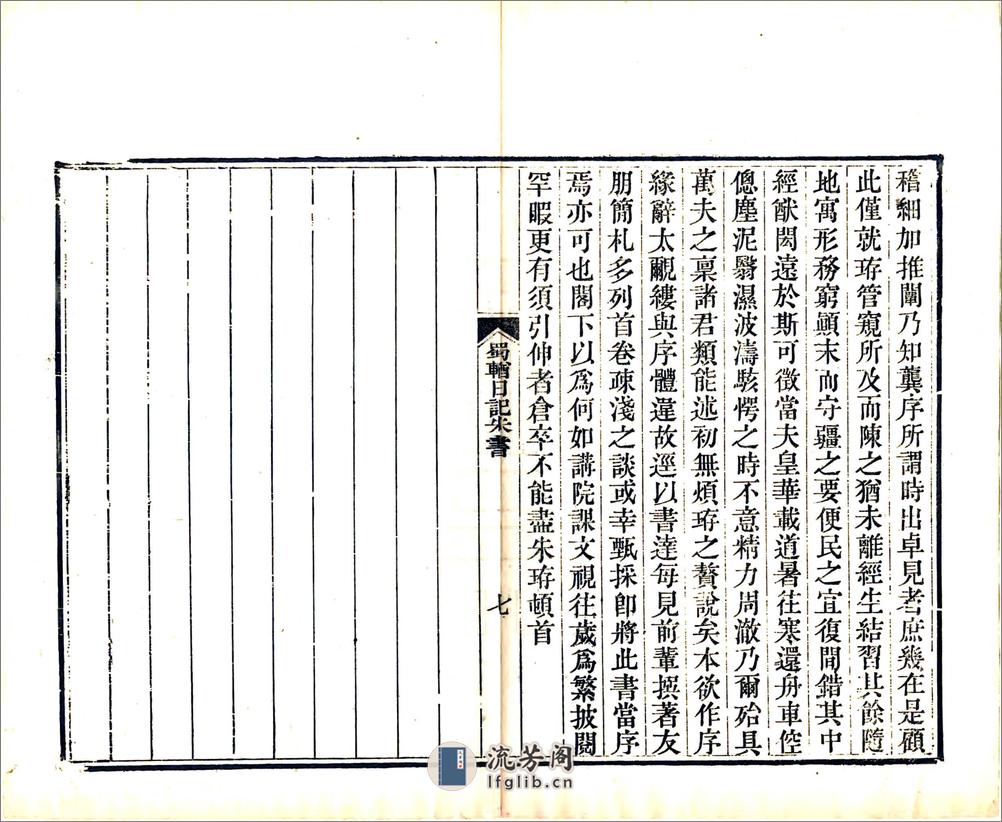 稽細加推闡乃知龔序所謂時出卓見者庶幾在是顧
此僅就珔管窺所及而陳之猶未離經生結習其餘隨
地寓形務窮顚末而守疆之要便民之宜復閒錯其中
經猷閎遠於斯可徵當夫皇華載道暑往寒還舟車倥
傯塵泥翳濕波濤駭愕之時不意精力周澈乃爾殆具
萬夫之稟諸君類能述初無煩珔之贅說矣本欲作序
緣辭太覼縷與序體違故逕以書達每見前輩撰著友
朋簡札多列首卷疎淺之談或幸甄採卽將此書當序
焉亦可也閣下以爲何如講院課文視往歲爲繁披閱
罕暇更有須引伸者倉卒不能盡朱珔頓首
蜀輶日記朱書
七
流芳阁
lfglib.cn